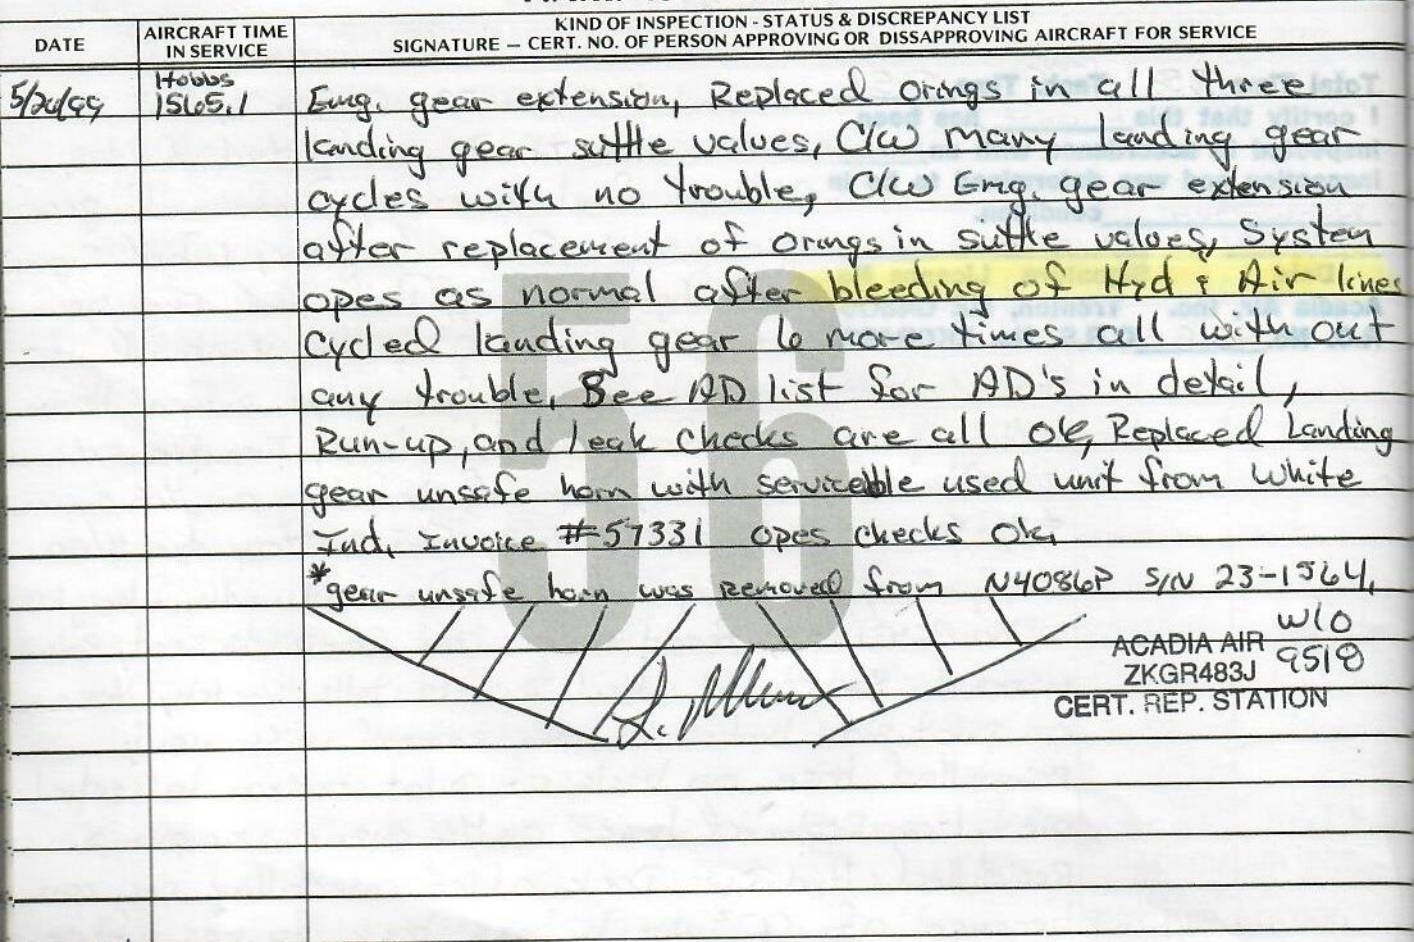 KIND OF INSPECTION - STATUS & DISCREPANCY LIST
DATE
AIRCRAFT TIME
IN SERVICE
SIGNATURE — CERT. NO. OF PERSON APPROVING OR DISSAPPROVING AIRCRAFT FOR SERVICE
Hobbs
1565.1
Emg. gear extension, Replaced orings in all three
landing gear suttle values, C/W many landing gear
cycles with no trouble, C/W Emg. gear extension
after replacement of orings in suttle values, System
opes as normal after bleeding of Hyd & Air lines
Cycled landing gear 6 more times all without
any trouble, See AD list for AD's in detail,
Run-up, and leak checks are all ok, Replaced Landing
gear unsafe horn with serviceable used unit from White
Ind, Invoice #57331 opes checks ok,
*gear unsafe horn was removed from N4086P S/N 23-1564,
W/O
ACADIA AIR 9518
ZKGR483J
CERT. REP. STATION
56